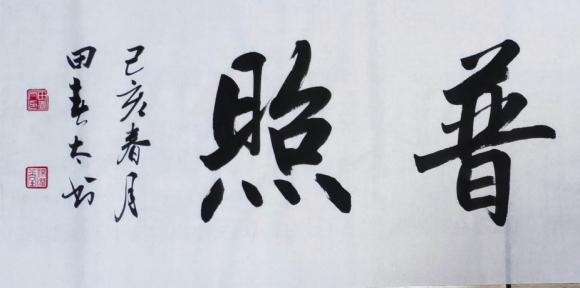 普照
己亥春月
田春太书